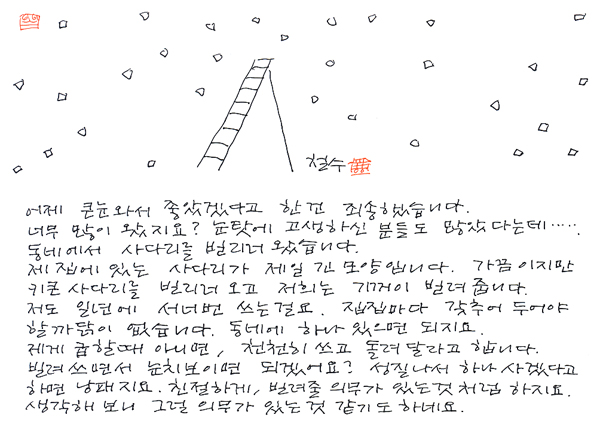 철수
어제 큰눈와서 좋았겠다고 한건 죄송했습니다.
너무 많이 왔지요? 눈탓에 고생하신 분들도 많았다는데‥‥.
동네에서 사다리를 빌리러 왔습니다.
제집에 있는 사다리가 제일 긴 모양입니다. 가끔이지만
키큰사다리를 빌리러 오고 저희는 기꺼이 빌려줍니다.
저도 일년에 서너번 쓰는걸요. 집집마다 갖추어 두어야
할까닭이 없습니다. 동네에 하나 있으면 되지요.
제게 급할때 아니면, 천천히 쓰고 돌려달라고 합니다.
빌려쓰면서 눈치보이면 되겠어요? 성질나서 하나사겠다고
하면 낭패지요. 친절하게, 빌려줄 의무가 있는것처럼 하지요.
생각해보니 그럴 의무가 있는것 같기도 하네요.